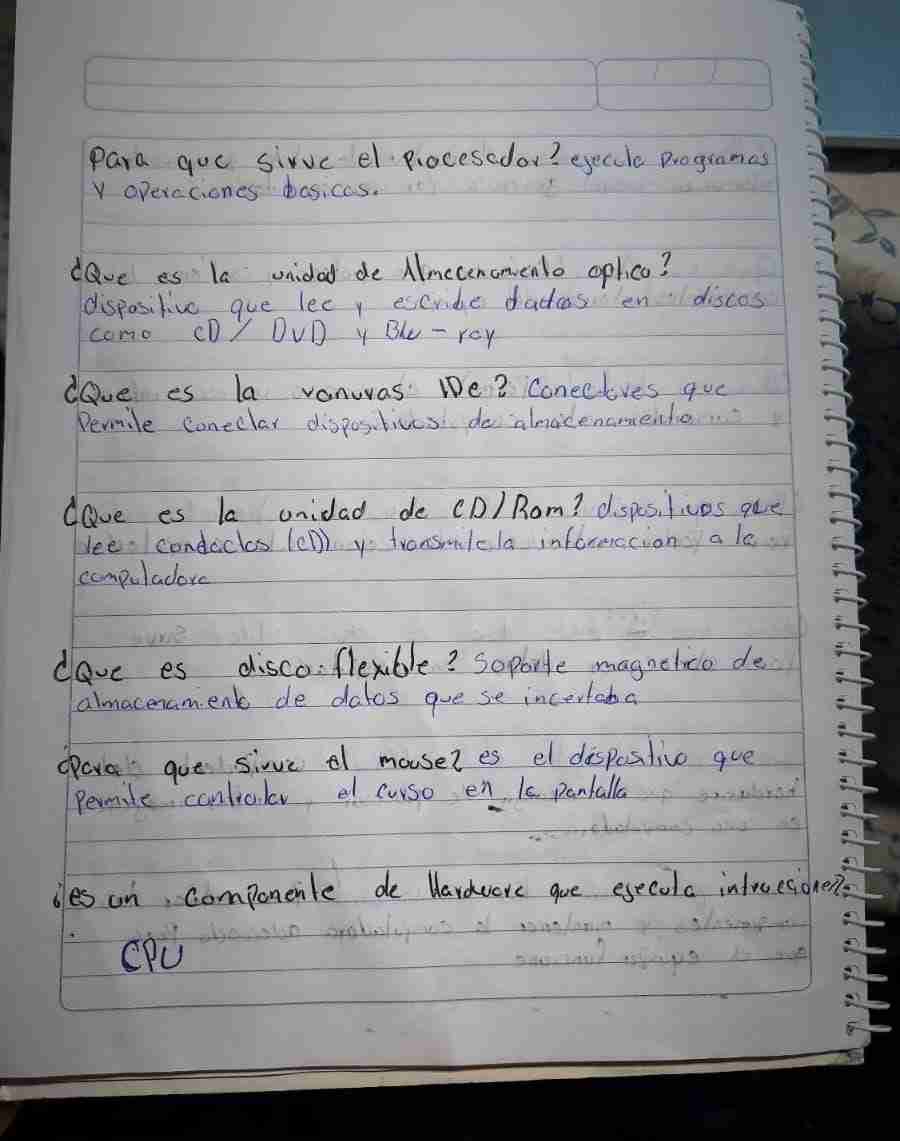 Para que sirve el procesador? ejecula programas
y operaciones basicas.
¿Que es la unidad de Almecenamiento optico?
dispositivo que lee y escribe dadaos en discos
como CD / DVD y Blu - ray
¿Que es la ranuras IDe? Conectores que
Permite coneclar dispositivos de almacenamiento
¿Que es la unidad de CD/Rom? dispositivos que
lee condaclos (CD) y transmite la informacion a la
computadora
¿Que es disco flexible? Soporte magnetico de
almacenamiento de datos que se incertaba
¿Para que sirve el mouse? es el dispositivo que
Permite controlar el curso en la pantalla
¿es un componente de Hardware que ejecula intrucciones?
CPU